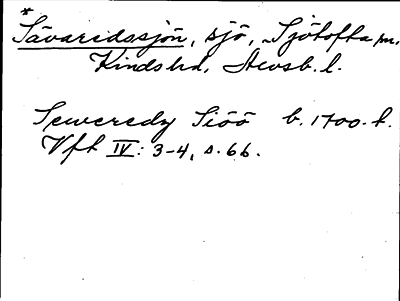 *
Sävaredssjön, sjö, Sjötofta sn.
Kinds hd, Älvsb. l.
Seweredz Siöö b. 1700-t.
Vft IV: 3-4, s. 66.